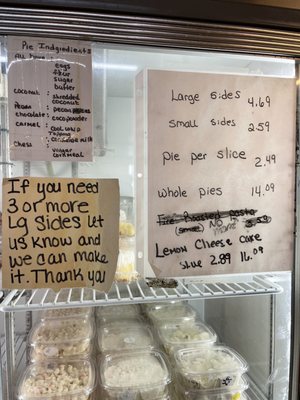 Pie Indgiredients
All have:
eggs
flour
sugar
butter
coconut: shredded
coconut
Pecan: pecan pieces
chocolate: cocopowder
carmel: cool whip
Topping
Chess: vinegar
cornmeal
If you need
3 or more
Lg Sides let
us know and
we can make
it. Thank you
Large sides 4.69
Small sides 2.59
Pie per slice 2.49
whole pies 14.09
Fire Roasted
NO
more
Lemon Cheese Cake
slice 2.89 16.09